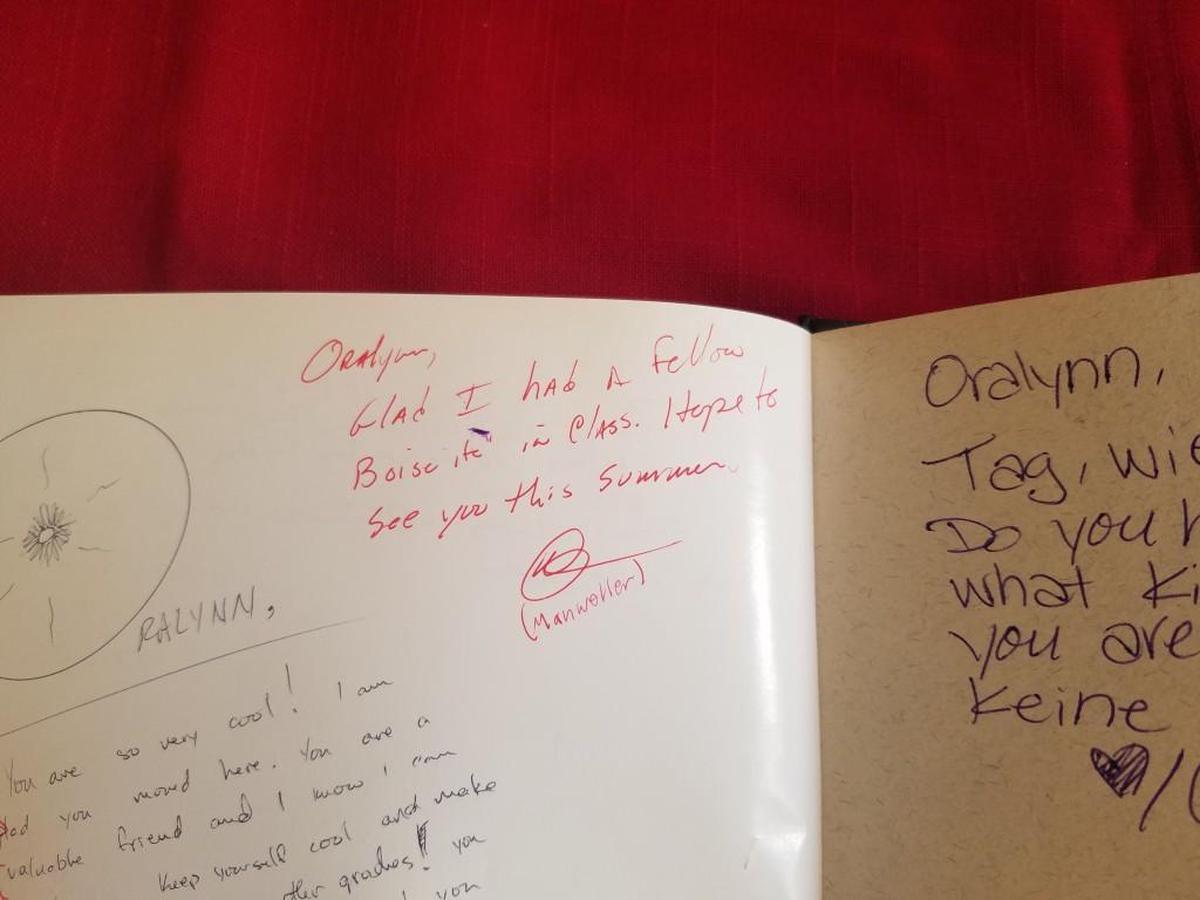 Oralynn,
Glad I had a fellow
Boise ite" in Class. Hope to
See you this Summer.
(Manweller)
RALYNN,
You are so very cool! I am
glad you moved here. You are a
valuable friend and I know I can
Keep yourself cool and make
grades! you
you
Oralynn,
Tag, wie
Do you h
what Ki
you are
Keine
♥/